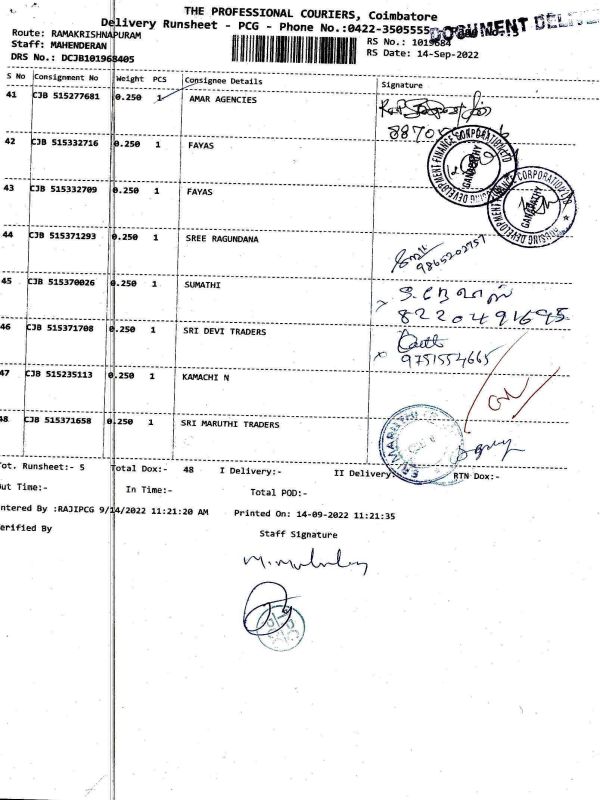 THE PROFESSIONAL COURIERS, Coimbatore
Delivery Runsheet - PCG - Phone No.:0422-3505555
DOCUMENT
Route: RAMAKRISHNAPURAM
Staff: MAHENDERAN
RS No.: 1019684
DRS No.: DCJB101968405
RS Date: 14-Sep-2022
S No Consignment No Weight PCS Consignee Details Signature
41 CJB 515277681 0.250 1 AMAR AGENCIES
42 CJB 515332716 0.250 1 FAYAS
HOUSING DEVELOPMENT FINANCE CORPORATION LTD
GANAPATHY
43 CJB 515332709 0.250 1 FAYAS
HOUSING DEVELOPMENT FINANCE CORPORATION LTD
GANAPATHY
44 CJB 515371293 0.250 1 SREE RAGUNDANA
9865202757
45 CJB 515370026 0.250 1 SUMATHI
8220491695
46 CJB 515371708 0.250 1 SRI DEVI TRADERS
9751554665
47 CJB 515235113 0.250 1 KAMACHI N
48 CJB 515371658 0.250 1 SRI MARUTHI TRADERS
Tot. Runsheet:- 5 Total Dox:- 48 I Delivery:- II Delivery:- RTN Dox:-
Out Time:- In Time:- Total POD:-
Entered By :RAJIPCG 9/14/2022 11:21:20 AM Printed On: 14-09-2022 11:21:35
Verified By
Staff Signature